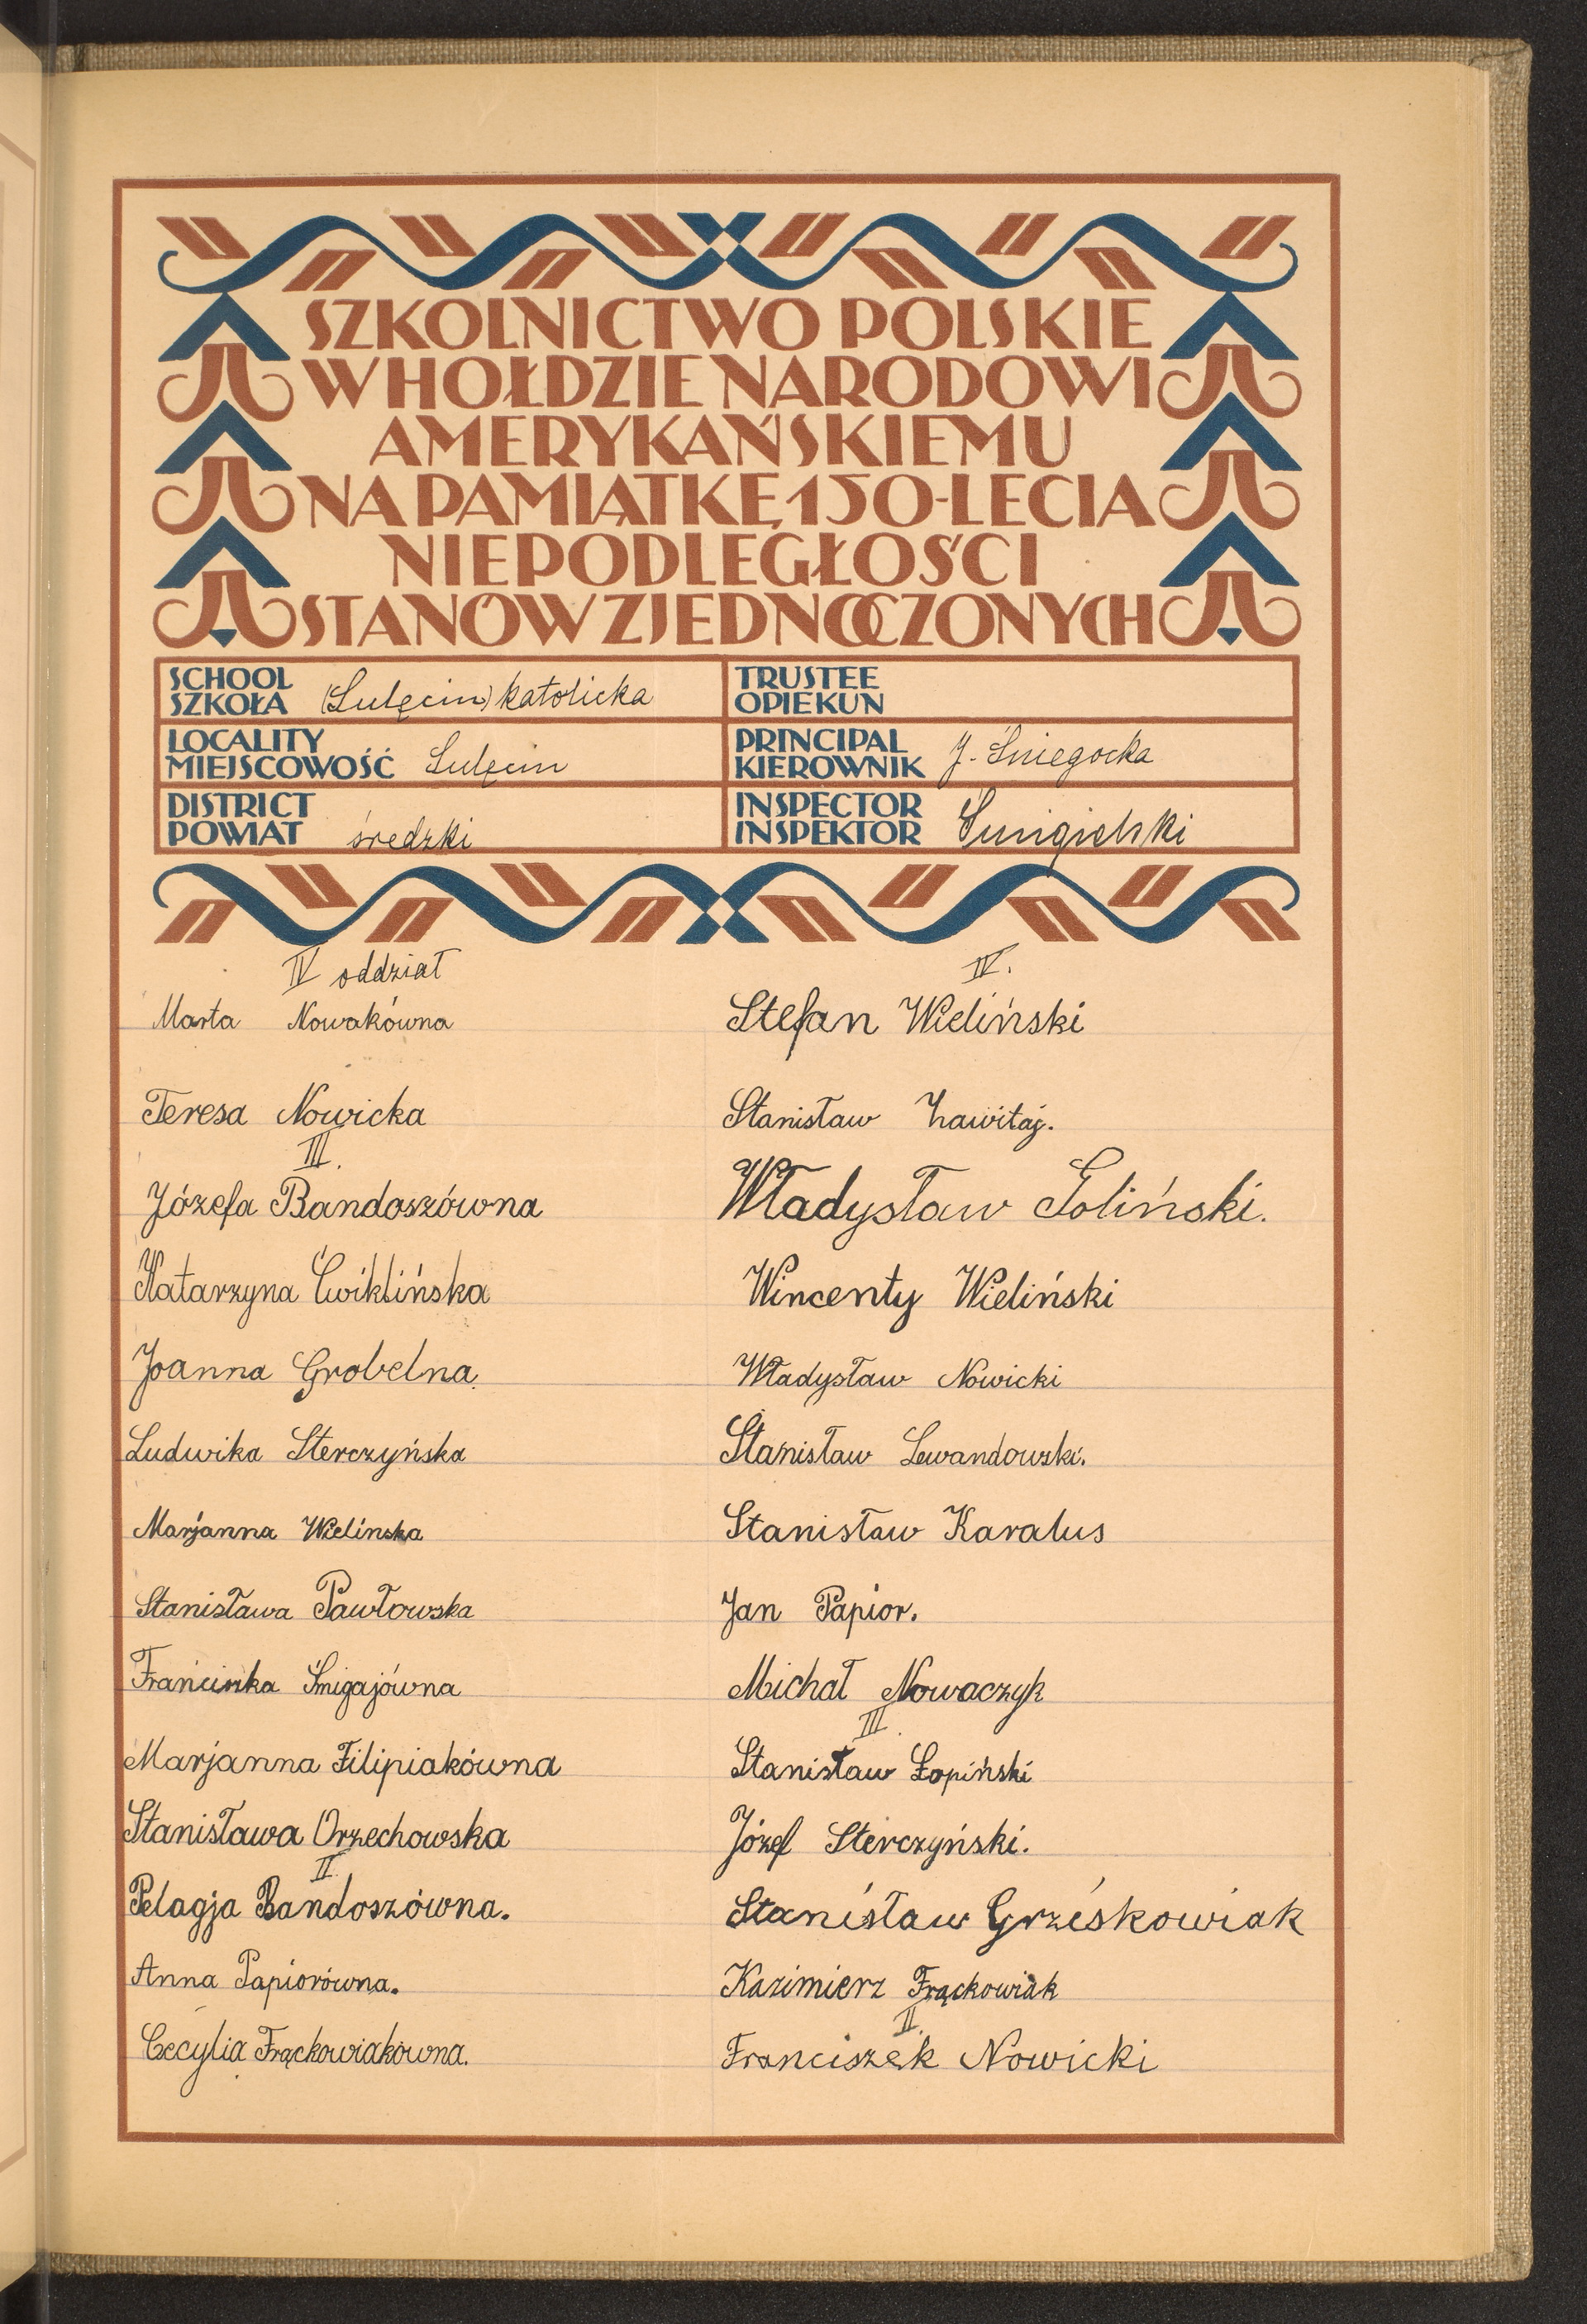 SZKOLNICTWO POLSKIE
W HOŁDZIE NARODOWI
AMERYKAŃSKIEMU
NA PAMIĄTKĘ 150-LECIA
NIEPODLEGŁOŚCI
STANÓW ZJEDNOCZONYCH
SCHOOL
SZKOŁA (Lulęcin) katolicka
LOCALITY
MIEJSCOWOŚĆ Lulęcin
DISTRICT
POWIAT średzki
TRUSTEE
OPIEKUN
PRINCIPAL
KIEROWNIK J. Śniegocka
INSPECTOR
INSPEKTOR
IV oddział
Marta Nowakówna
Teresa Nowicka
III.
Józefa Bandoszówna
Katarzyna Ćwiklińska
Joanna Grobelna
Ludwika Sterczyńska
Marjanna Wielinska
Stanisława Pawłowska
Franciszka Śmigajówna
Marjanna Filipiakówna
Stanisława Orzechowska
II.
Pelagja Bandoszówna.
Anna Papiorówna.
Cecylia Frąckowiakówna.
IV.
Stefan Wieliński
Stanisław Zawitaj.
Władysław Soliński.
Wincenty Wieliński
Władysław Nowicki
Stanisław Lewandowski.
Stanisław Karalus
Jan Papior.
Michał Nowaczyk
III.
Stanisław Łopiński
Józef Sterczyński.
Stanisław Grześkowiak
Kazimierz Frąckowiak
II.
Franciszek Nowicki